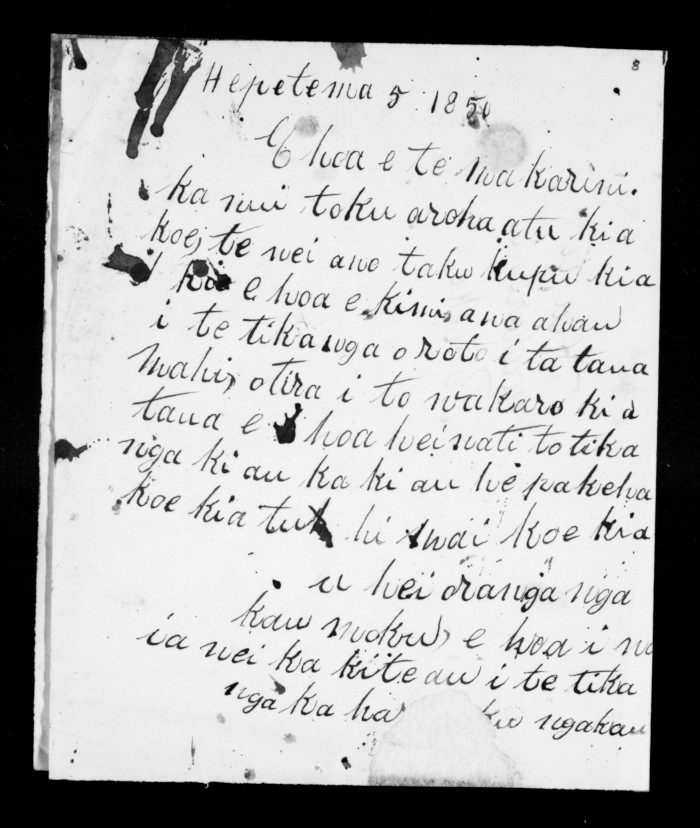 8
Hepetema 5 1850
E hoa e te makarini.
ka nui toku aroha atu kia
koe, te nei ano taku kupu kia
koe e hoa e kimi, ana ahau
i te tikanga o roto i ta taua
mahi, otira i to wakaro ki a
taua e hoa heinati to tika
nga ki au ka ki au he pakeha
koe kia tu hi mai koe kia
u hei oranga nga
kau moku, e hoa i na
ia nei ka kite au i te tika
nga ka ha ku ngakau